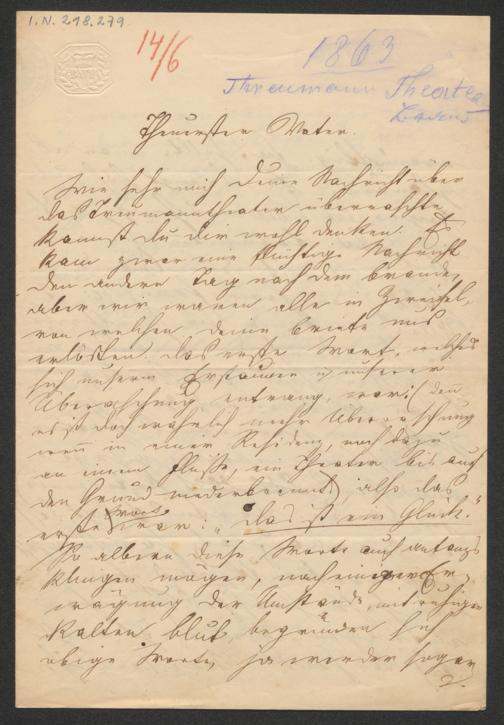 I.N. 218.279
BATH
14/6
1863
Treumann Theater
Theuerster Vater.
Wie sehr mich Deine Nachricht über
das Treumanntheater überraschte
kannst du dir wohl denken. Es
kam zwar eine flüchtige Nachricht
den andern Tag nach dem Brande,
aber wir waren alle in Zweifel,
von welchen deine Briefe uns
erlösten. Das erste Wort, welches
sich unserm Erstaunen u unserer
Überraschung entrang, war: (denn
es ist doch wahrlich mehr Überraschung
wenn in einer Residenz, noch dazu
an einem Fluße, ein Theater bis auf
den Grund niederbrennt) also das
erste Wort war: „Das ist ein Glück."
So albern diese Worte auch anfangs
klingen mögen, nach einiger Er-
wägung der Umstände, mit ruhigem
kalten Blut, begründen sich
obige Worte, ja werden sogar